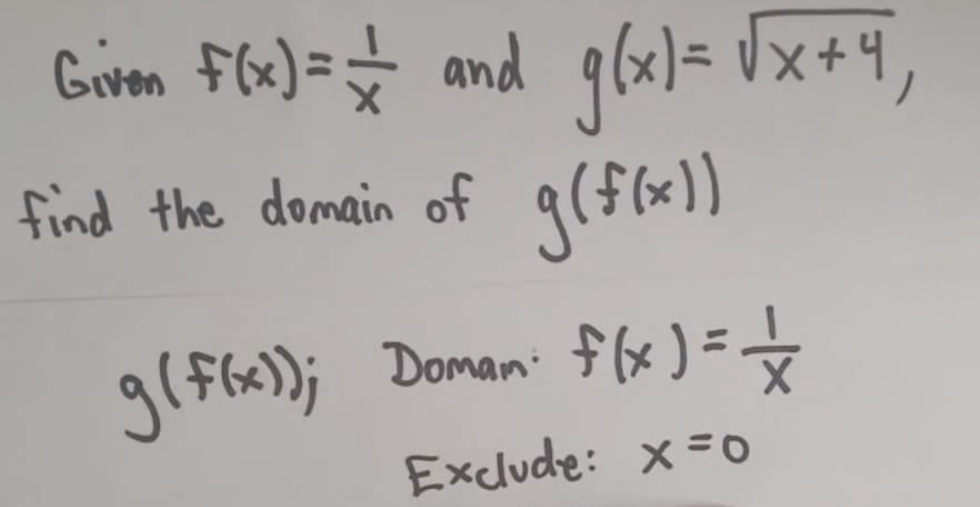 Given f(x) = 1/x and g(x) = √(x+4),
find the domain of g(f(x))
g(f(x)); Domain: f(x) = 1/x
Exclude: x = 0